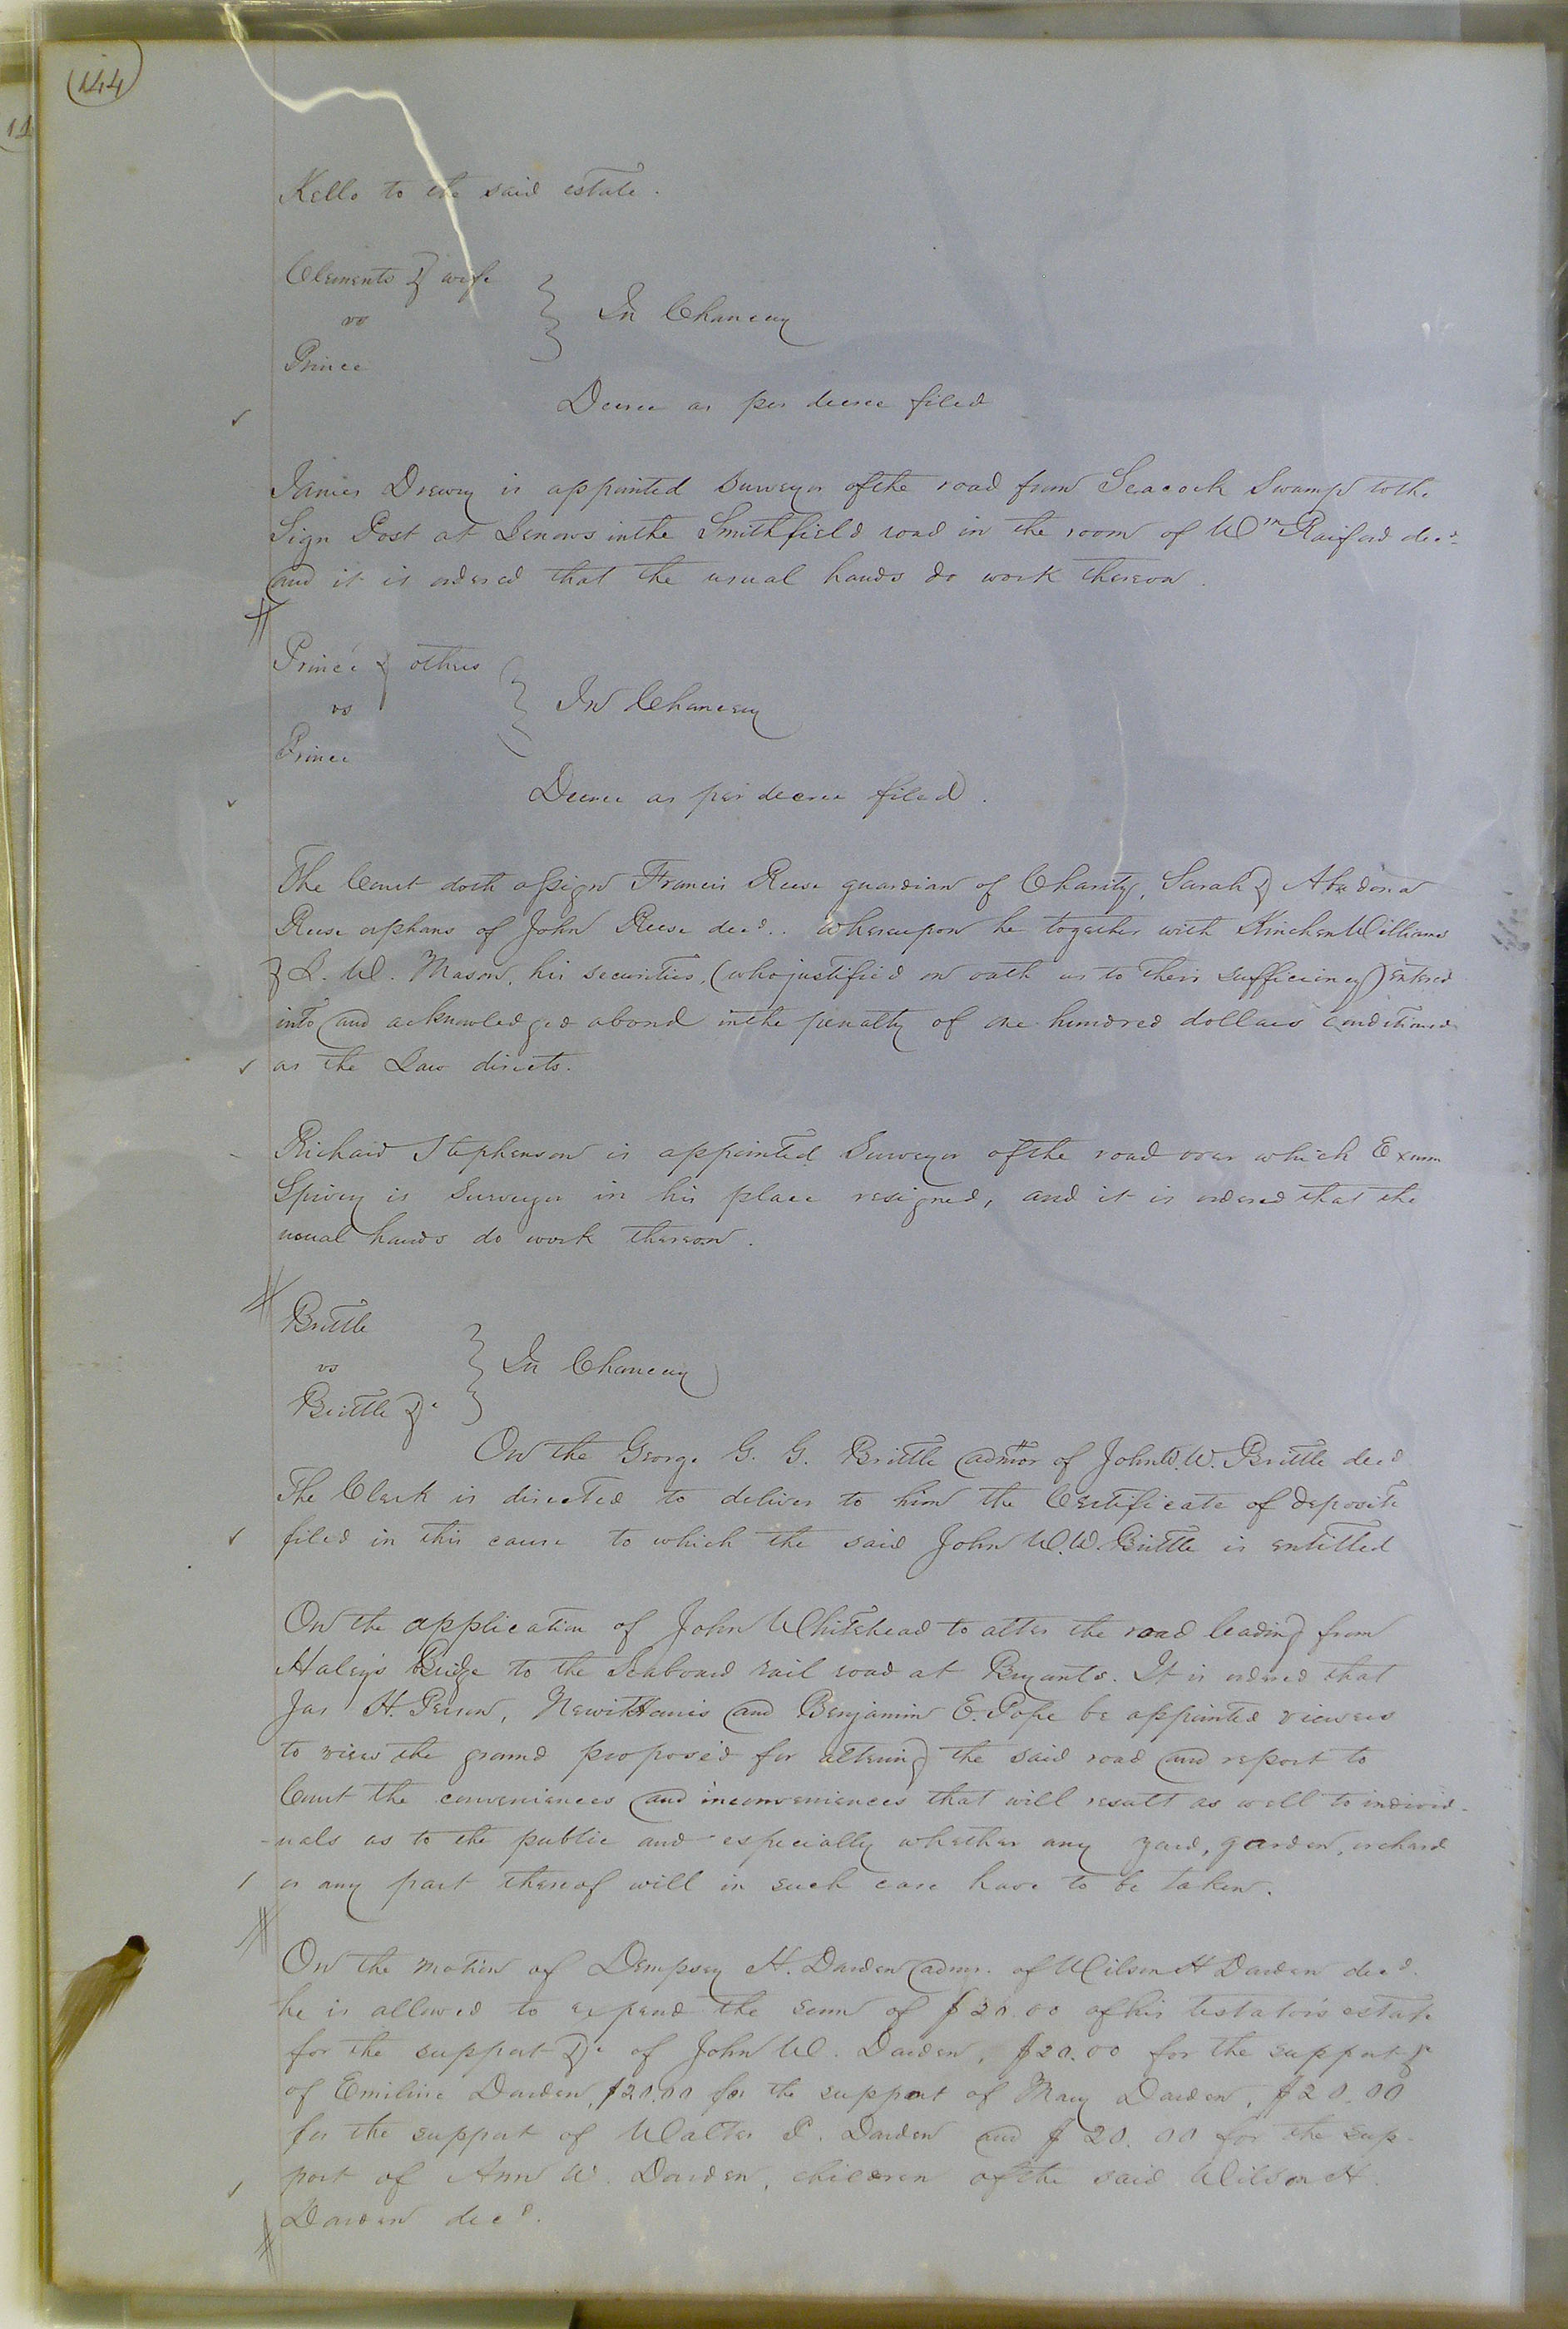 144
Kello to the said estate.
Clements & wife
vs
In Chancery
Prince
Decree as per decree filed
James Drewry is appointed Surveyor of the road from Seacock Swamp to the
Sign Post at Lenows in the Smithfield road in the room of Wm Raiford decd
and it is ordered that the usual hands do work thereon.
Prince & others
vs
In Chancery
Prince
Decree as per decree filed.
The Court doth assign Francis Reese guardian of Charity, Sarah &
Reese orphans of John Reese decd.. Whereupon he together with Kinchen Williams
& L. W. Mason, his securities, (who justified on oath as to their sufficiency) entered
into and acknowledged a bond in the penalty of one hundred dollars conditioned
as the Law directs.
Richard Stephenson is appointed Surveyor of the road over which Exum
Spivey is Surveyor in his place resigned, and it is ordered that the
usual hands do work thereon.
Brittle
vs
In Chancery
Brittle &c
On the George G. G. Brittle admor of John W. W. Brittle decd
The Clerk is directed to deliver to him the Certificate of deposite
filed in this cause to which the said John W. W. Brittle is entitled
On the application of John Whitehead to alter the road leading from
Haley's Bridge to the Seaboard rail road at Bryants. It is ordered that
Jas H. Person, Newit Harris and Benjamin E. Pope be appointed viewers
to view the ground proposed for altering the said road and report to
Court the conveniences and inconveniences that will result as well to individ-
-uals as to the public and especially whether any yard, garden, orchard
or any part thereof will in such case have to be taken.
On the motion of Dempsey H. Darden admr. of Wilson H Darden decd.
he is allowed to expend the sum of $20.00 of his testator's estate
for the support &c of John W. Darden, $20.00 for the support &c
of Emiline Darden, $20.00 for the support of Mary Darden, $20.00
for the support of Walter P. Darden and $20.00 for the sup-
port of Ann W. Darden, children of the said Wilson H.
Darden decd.